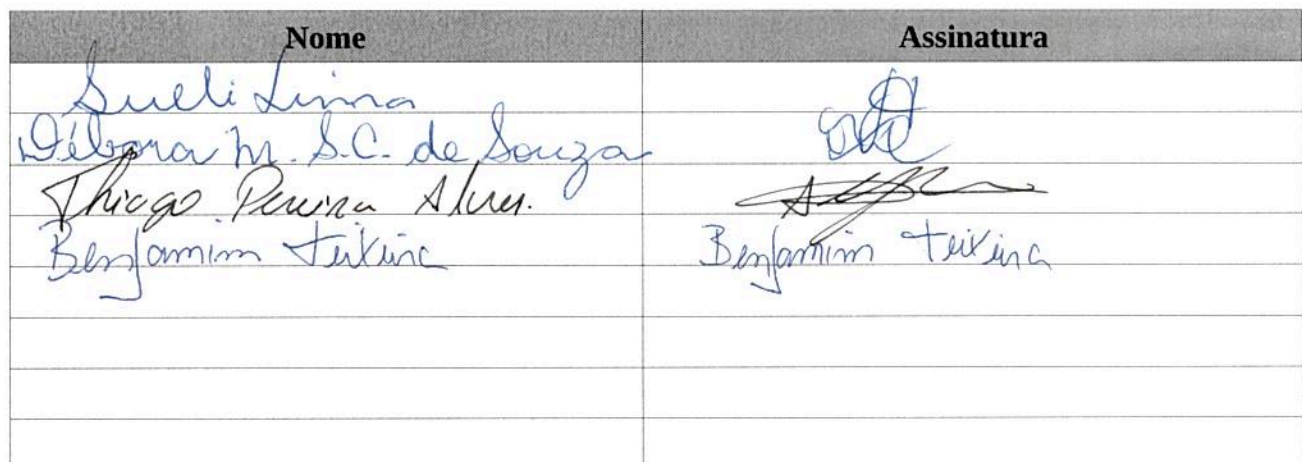 Nome Assinatura
Sueli Lima
Débora M. S. C. de Souza
Thiago Pereira Alves.
Benjamim Teixeira Benjamim Teixeira